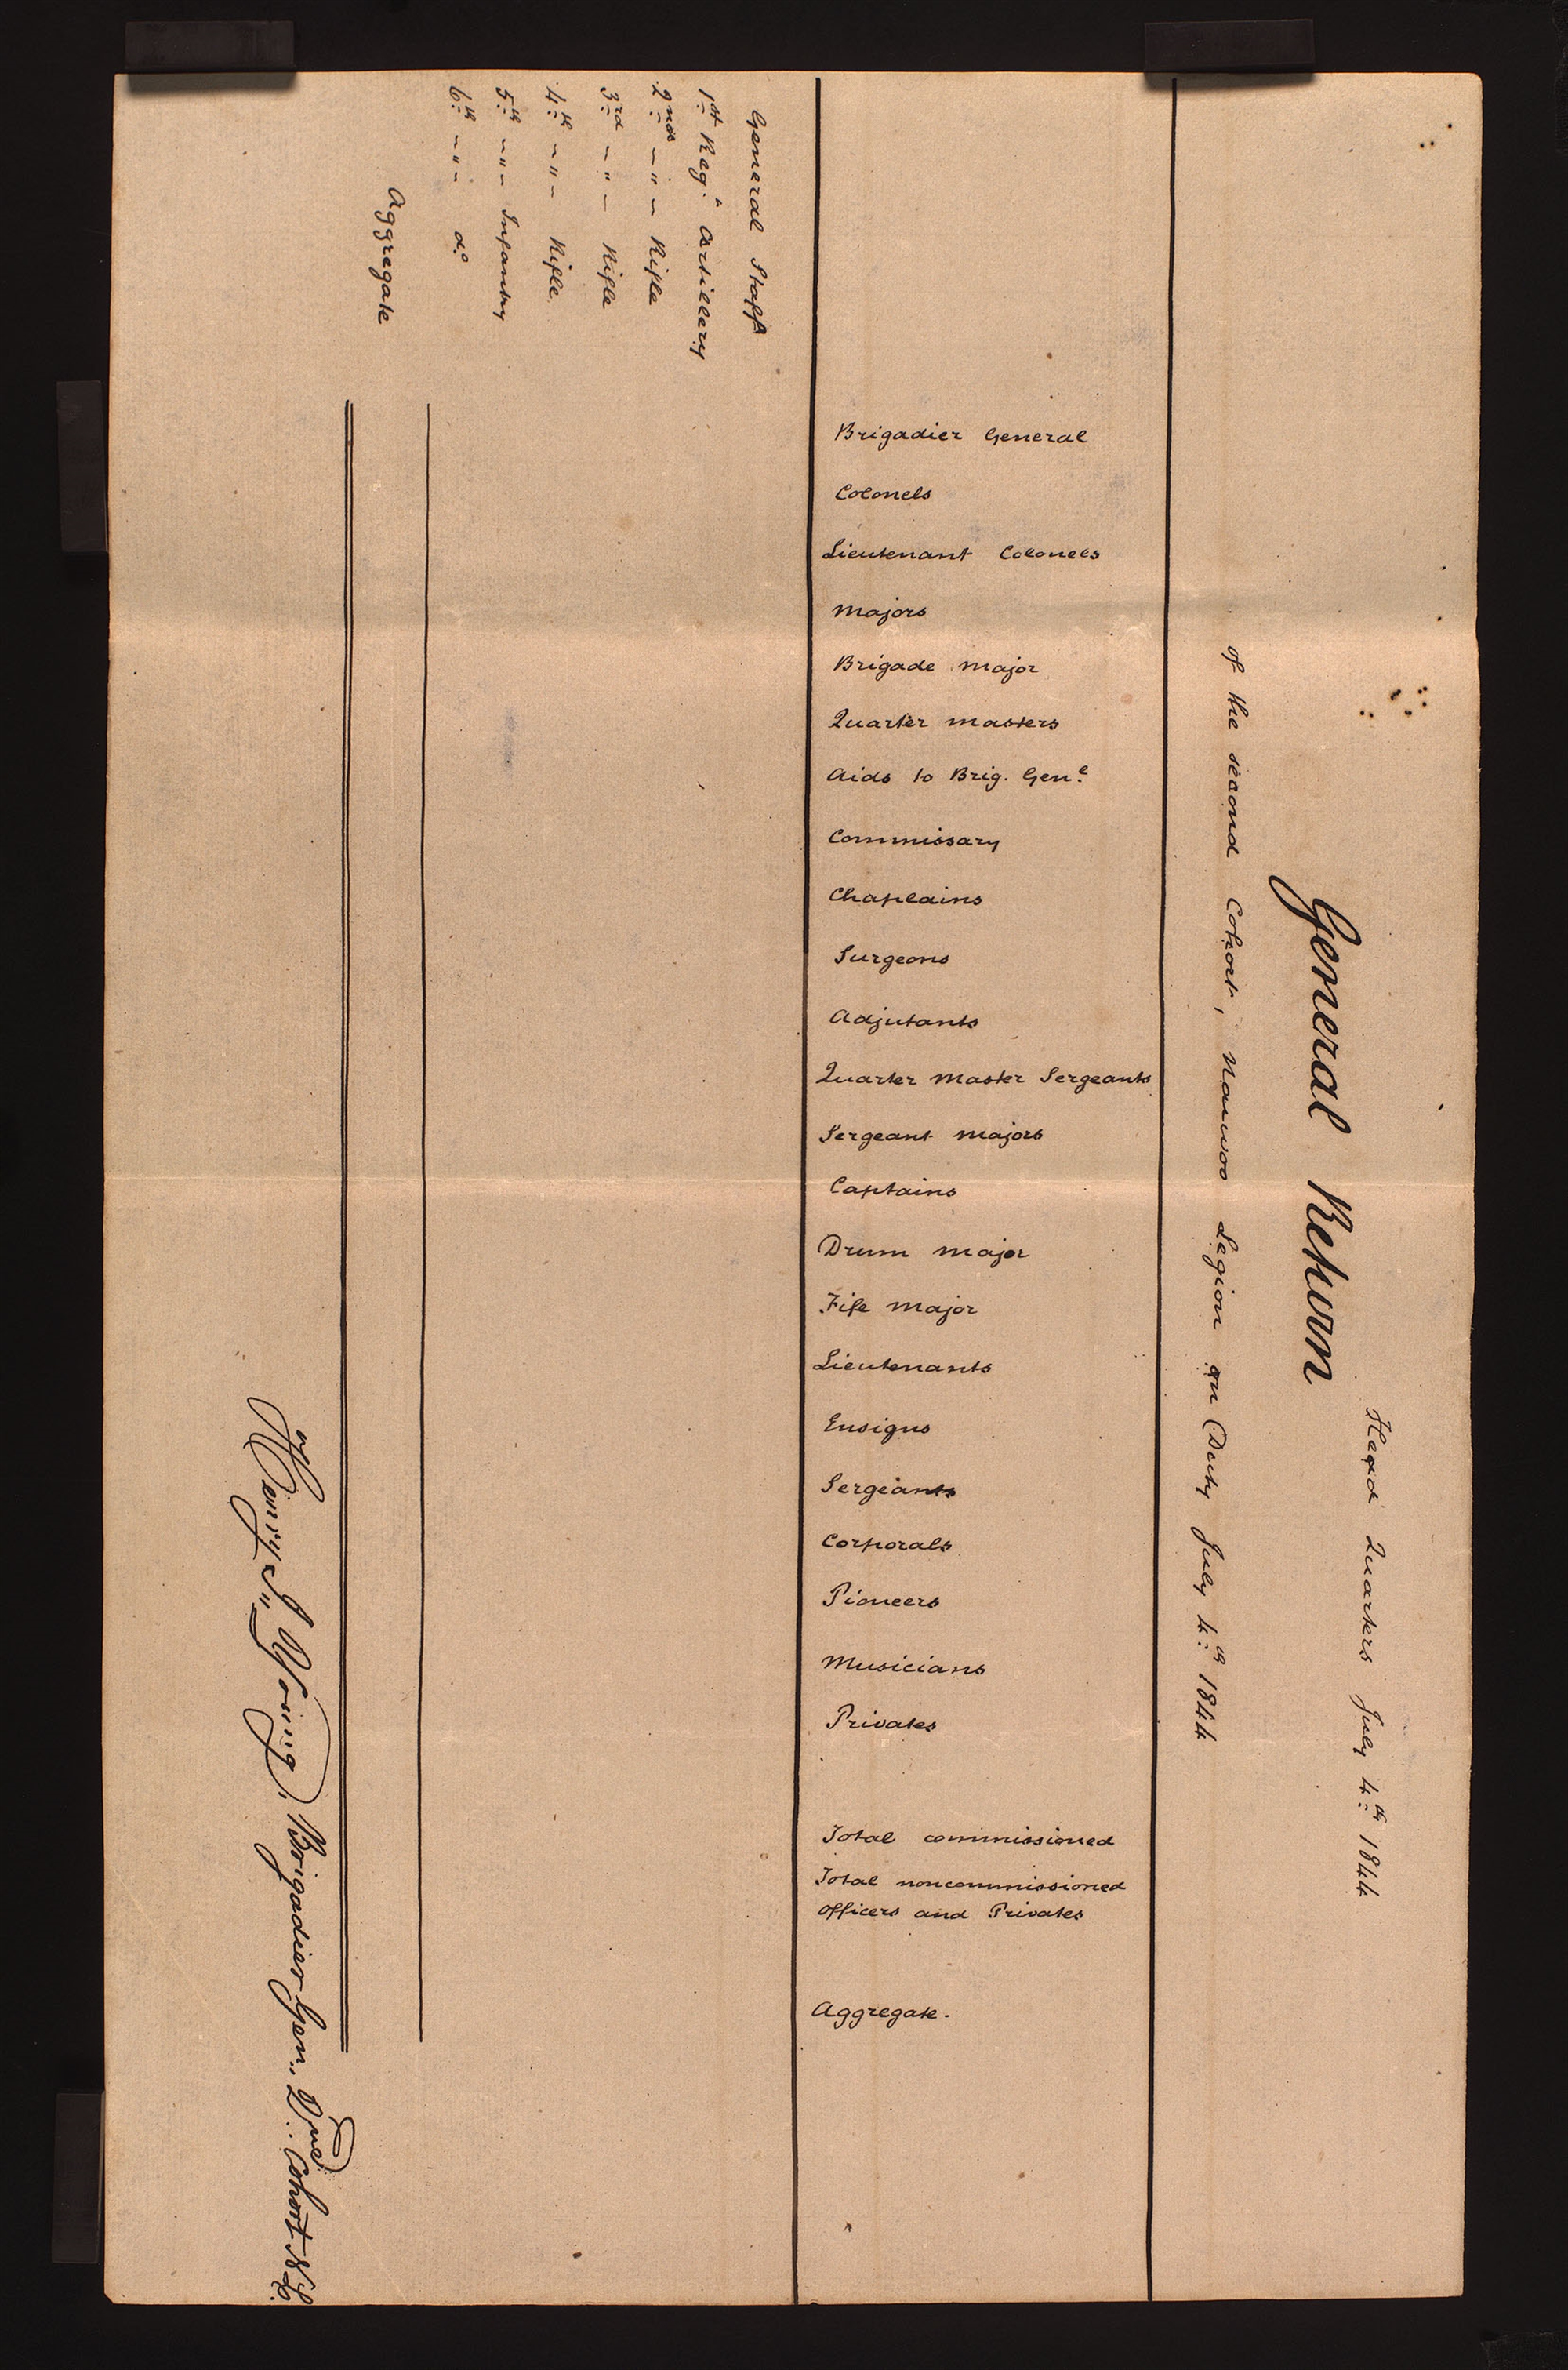 Head Quarters July 4th 1844
General Return
of the second Cohort, Nauvoo Legion on Duty July 4th 1844
Brigadier General
Colonels
Lieutenant Colonels
Majors
Brigade Major
Quarter Masters
Aids to Brig. Genl
Commissary
Chaplains
Surgeons
Adjutants
Quarter Master Sergeants
Sergeant Majors
Captains
Drum Major
Fife Major
Lieutenants
Ensigns
Sergeants
Corporals
Pioneers
Musicians
Privates
Total commissioned
Total noncommissioned
officers and Privates
Aggregate.
General Staff
1st Regt Artillery
2nd - " - Rifle
3rd - " - Rifle
4th - " - Rifle
5th - " - Infantry
6th - " - do
Aggregate
of Brigadier Gen., 2nd Cohort N L.